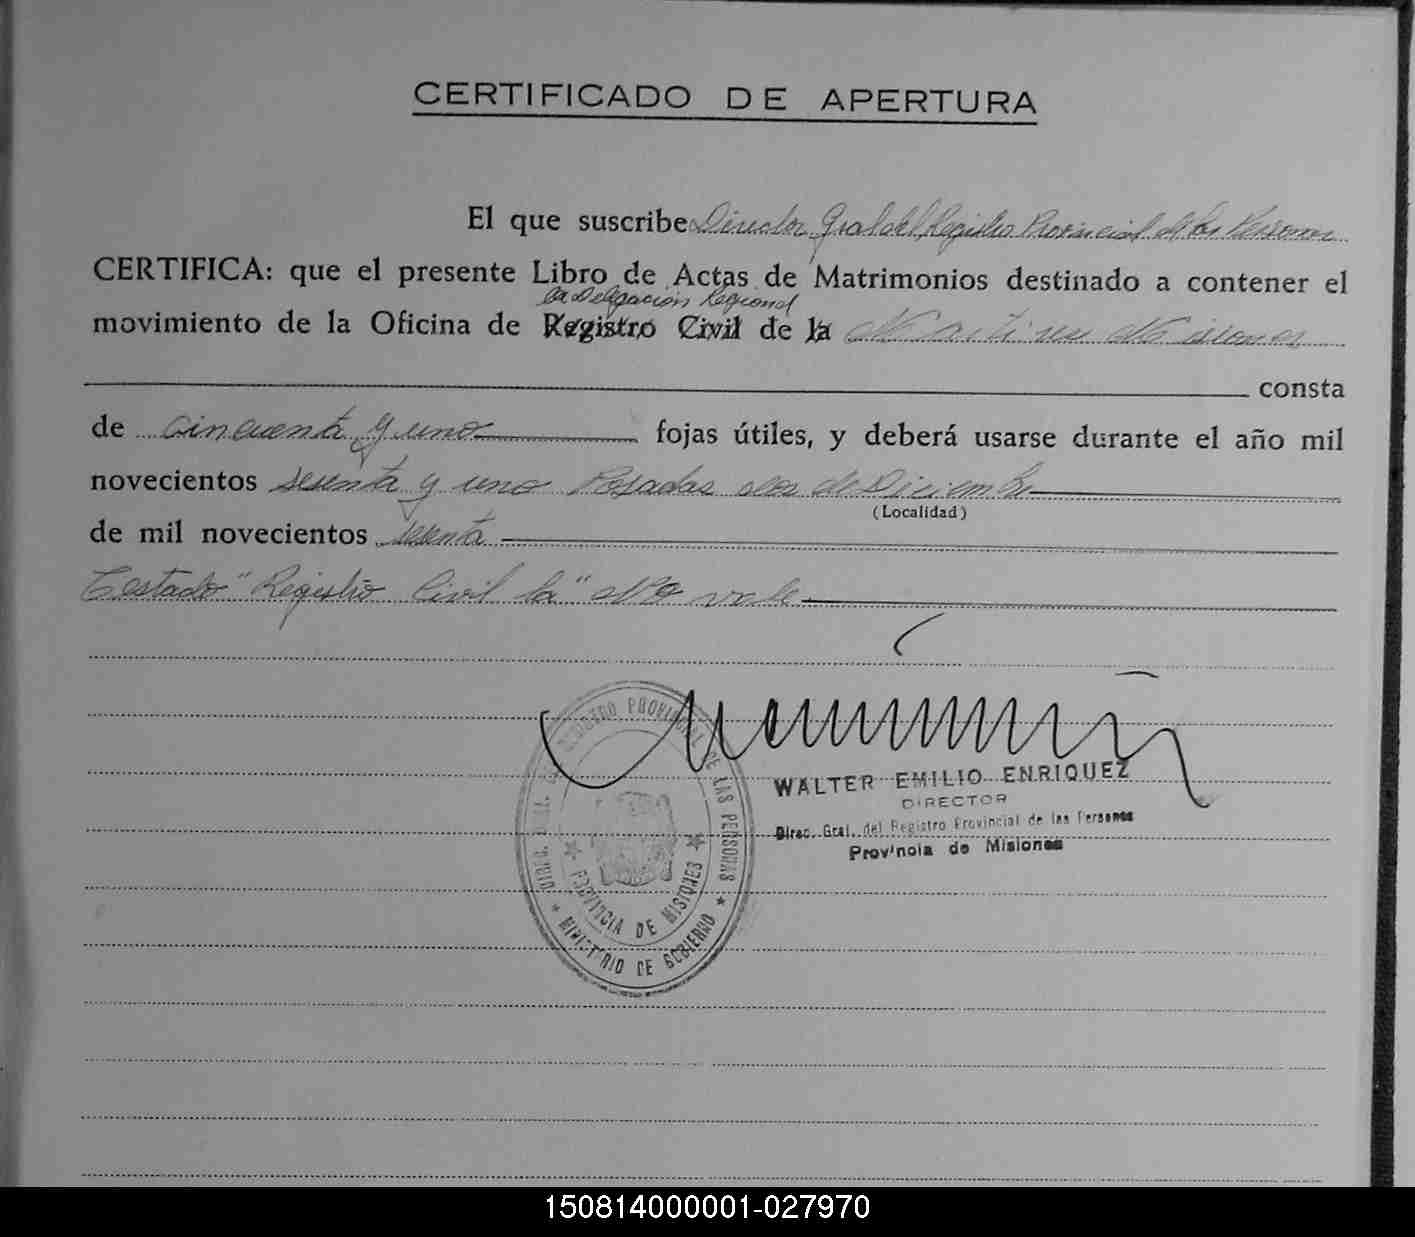 CERTIFICADO DE APERTURA
El que suscribe Director Gral del Registro Provincial de las Personas
CERTIFICA: que el presente Libro de Actas de Matrimonios destinado a contener el
la Delegación Regional
movimiento de la Oficina de Registro Civil de la Martires Misiones
consta
de cincuenta y uno fojas útiles, y deberá usarse durante el año mil
novecientos sesenta y uno Posadas dos de Diciembre
(Localidad)
de mil novecientos sesenta
Testado "Registro Civil la" No vale
REGISTRO PROVINCIAL DE LAS PERSONAS
PROVINCIA DE MISIONES
MINISTERIO DE GOBIERNO
WALTER EMILIO ENRIQUEZ
DIRECTOR
Direc. Gral. del Registro Provincial de las Personas
Provincia de Misiones
150814000001-027970